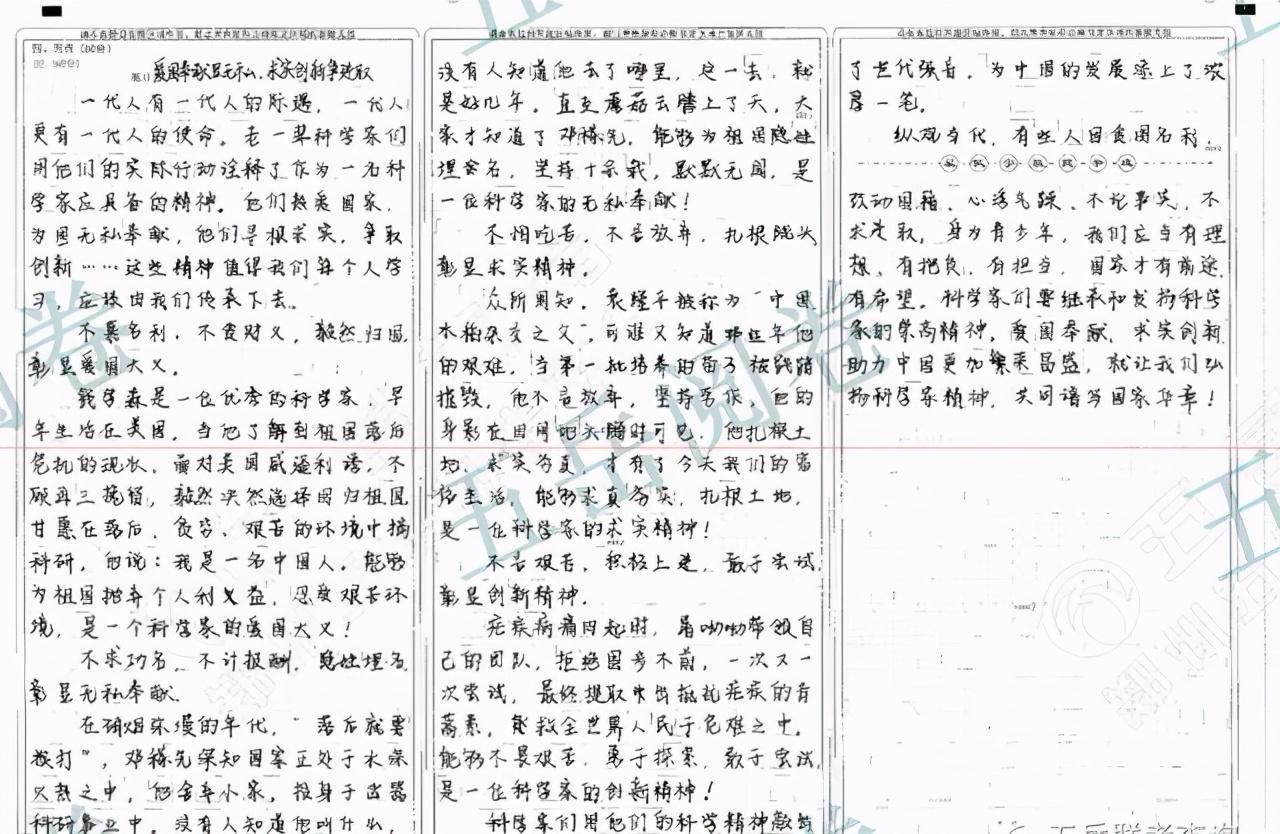 四、写作(60分)
爱国奉献显无私,求实创新争进取
一代人有一代人的际遇,一代人
更有一代人的使命。老一辈科学家们
用他们的实际行动诠释了作为一名科
学家应具备的精神。他们热爱国家,
为国无私奉献,他们寻根求实,争取
创新……这些精神值得我们每个人学
习,应该由我们传承下去。
不慕名利,不贪财义,毅然归国,
彰显爱国大义。
钱学森是一位优秀的科学家,早
年生活在美国,当他了解到祖国落后
危机的现状,面对美国威逼利诱,不
顾再三挽留,毅然决然选择回归祖国,
甘愿在落后、贫穷、艰苦的环境中搞
科研,他说:我是一名中国人。能够
为祖国抛弃个人利益,忍受艰苦环
境,是一个科学家的爱国大义!
不求功名,不计报酬,隐姓埋名,
彰显无私奉献。
在硝烟弥漫的年代,“落后就要
挨打”,邓稼先深知国家正处于水深
火热之中,他舍弃小家,投身于武器
科研事业中。没有人知道他叫什么,
没有人知道他去了哪里,这一去,就
是好几年。直至蘑菇云腾上了天,大
家才知道了邓稼先,能够为祖国隐姓
埋名,坚持十余载,默默无闻,是
一位科学家的无私奉献!
不怕吃苦,不言放弃,扎根陇头
彰显求实精神。
众所周知,袁隆平被称为“中国
水稻杂交之父”,可谁又知道那些年他
的艰难,当第一批培养的苗子被践踏
摧毁,他不言放弃,坚持劳作,他的
身影在田间地头随时可见,他扎根土
地,求实为真,才有了今天我们的富
裕生活,能够求真务实,扎根土地,
是一位科学家的求实精神!
不言艰苦,积极上进,敢于尝试
彰显创新精神。
疟疾病痛四起时,屠呦呦带领自
己的团队,拒绝固步不前,一次又一
次尝试,最终提取出抵抗疟疾的青
蒿素,拯救全世界人民于危难之中。
能够不畏艰苦,勇于探索,敢于尝试,
是一位科学家的创新精神!
科学家们用他们的科学精神
了世代强音,为中国的发展添上了浓
厚一笔。
纵观当代,有些人因贪图名利,
改动国籍、心浮气躁、不论事实、不
求进取。身为青少年,我们应当有理
想、有抱负、有担当,国家才有前途,
有希望。科学家们要继承和发扬科学
家的崇高精神,爱国奉献、求实创新,
助力中国更加繁荣昌盛,就让我们弘
扬科学家精神,共同谱写国家华章!
五岳阅卷
五岳阅卷